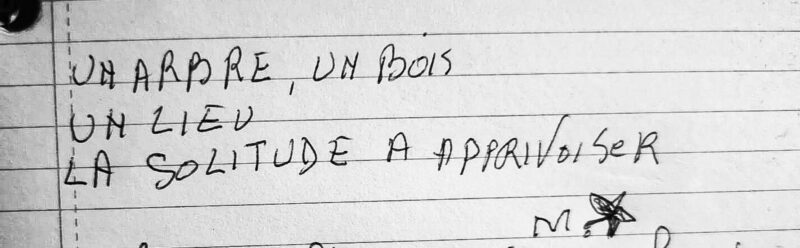 UN ARBRE, UN BOIS
UN LIEU
LA SOLITUDE A APPRIVOISER
M.